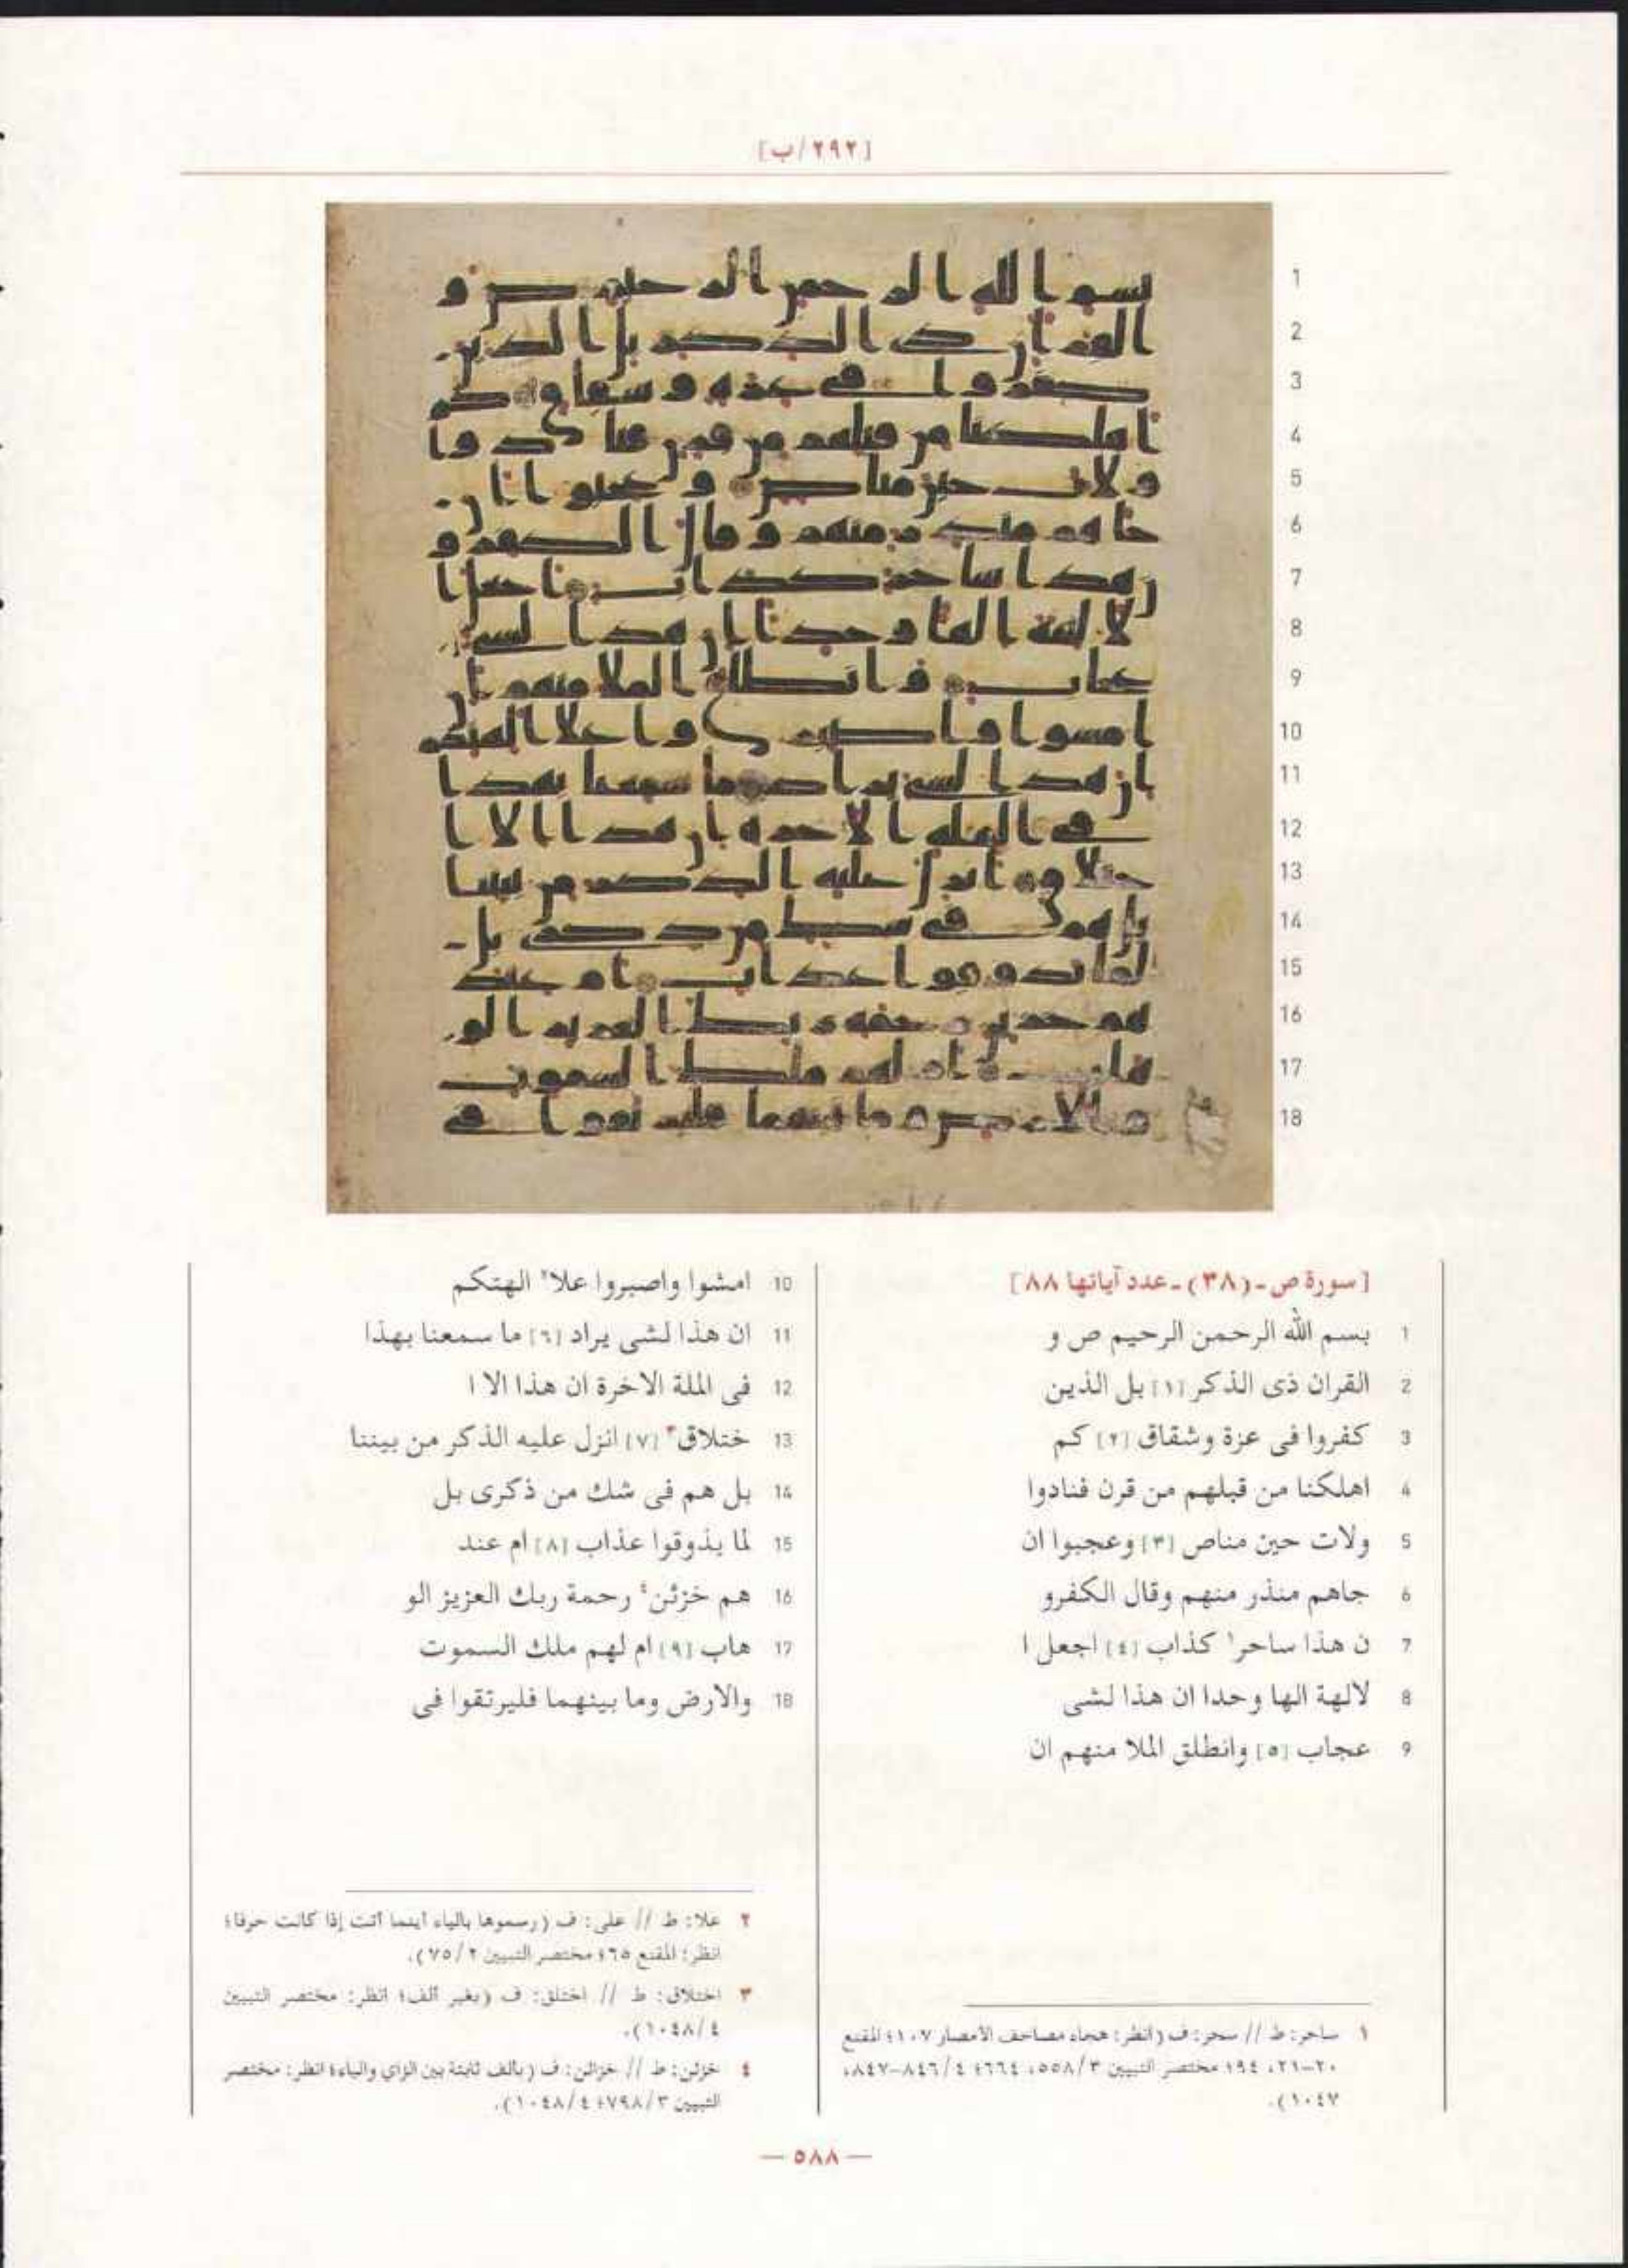 [٢٩٢/ب]
1
2
3
4
5
6
7
8
9
10
11
12
13
14
15
16
17
18
[سورة ص ـ (٣٨) ـ عدد آياتها ٨٨]
1 بسم الله الرحمن الرحيم ص و
2 القران ذى الذكر [١] بل الذين
3 كفروا فى عزة وشقاق [٢] كم
4 اهلكنا من قبلهم من قرن فنادوا
5 ولات حين مناص [٣] وعجبوا ان
6 جاهم منذر منهم وقال الكفرو
7 ن هذا ساحر١ كذاب [٤] اجعل ا
8 لالهة الها وحدا ان هذا لشى
9 عجاب [٥] وانطلق الملا منهم ان
10 امشوا واصبروا علا٢ الهتكم
11 ان هذا لشى يراد [٦] ما سمعنا بهذا
12 فى الملة الاخرة ان هذا الا ا
13 ختلاق٣ [٧] انزل عليه الذكر من بيننا
14 بل هم فى شك من ذكرى بل
15 لما يذوقوا عذاب [٨] ام عند
16 هم خزئن٤ رحمة ربك العزيز الو
17 هاب [٩] ام لهم ملك السموت
18 والارض وما بينهما فليرتقوا فى
١ ساحر: ط // سحر: ف (انظر: هجاء مصاحف الأمصار ١٠٧؛ المقنع
٢٠-٢١، ٩٤؛ مختصر التبيين ٣/٥٥٨، ٦٦٤؛ ٤/٨٤٦-٨٤٧،
١٠٤٧).
٢ علا: ط // على: ف (رسموها بالياء أينما أتت إذا كانت حرفا؛
انظر: المقنع ٦٥؛ مختصر التبيين ٢/٧٥).
٣ اختلاق: ط // اختلق: ف (بغير ألف؛ انظر: مختصر التبيين
٤/١٠٤٨).
٤ خزئن: ط // خزائن: ف (بألف ثابتة بين الزاي والياء؛ انظر: مختصر
التبيين ٣/٧٩٨؛ ٤/١٠٤٨).
— ٥٨٨ —